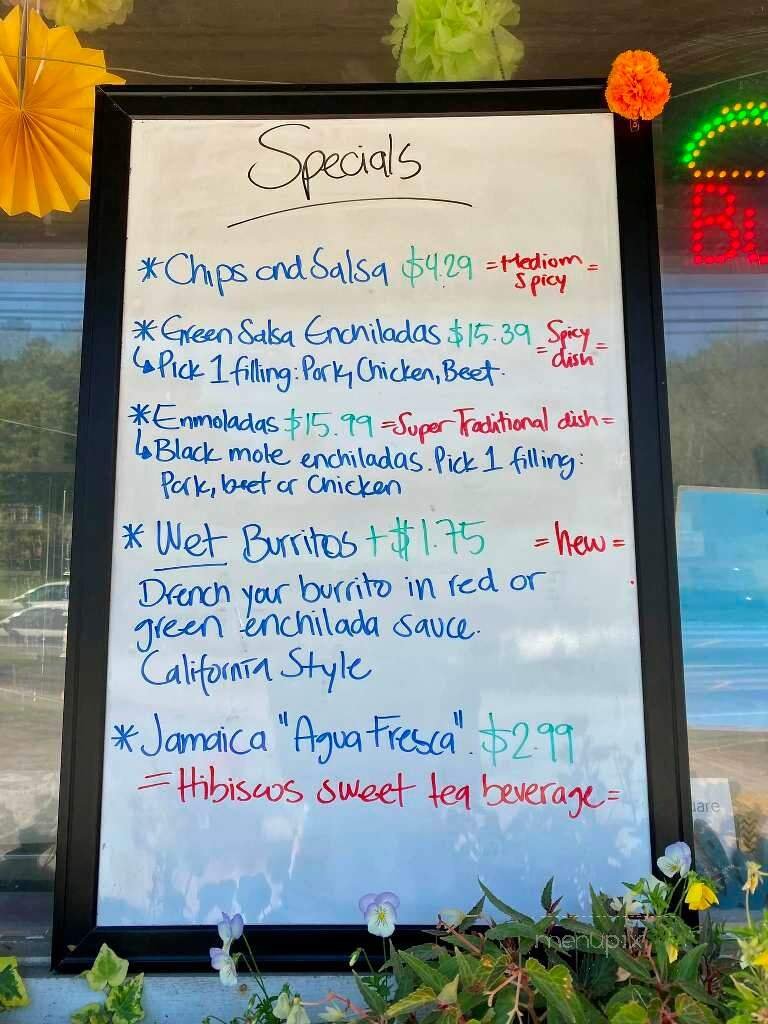 Specials
*Chips and Salsa $4.29 =Mediom Spicy=
*Green Salsa Enchiladas $15.39 =Spicy dish=
↳Pick 1 filling: Pork, Chicken, Beef.
*Enmoladas $15.99 =Super Traditional dish=
↳Black mole enchiladas. Pick 1 filling:
Pork, beef or Chicken
* Wet Burritos +$1.75 =New=
Drench your burrito in red or
green enchilada sauce.
California Style
*Jamaica "Agua Fresca". $2.99
=Hibiscos sweet tea beverage=
menupix